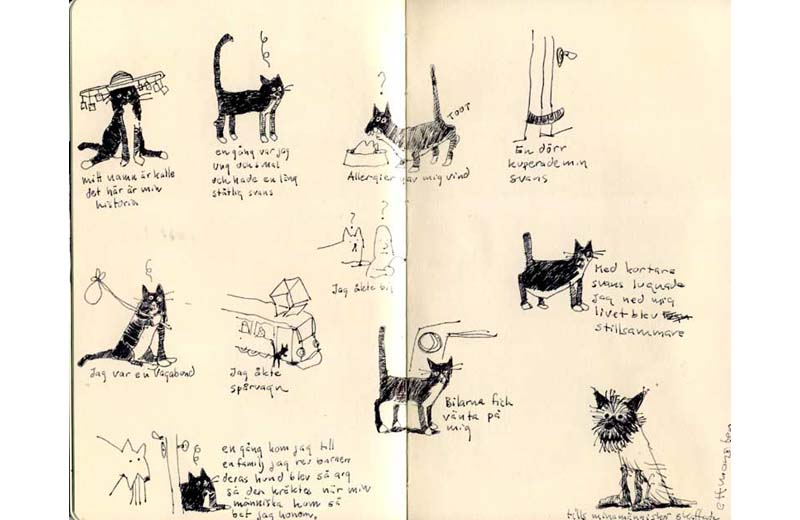 mitt namn är kalle
det här är min
historia
en gång var jag
ung och smal
och hade en lång
ståtlig svans
?
TOOT
Allergier gav mig vind
En dörr
kuperade min
svans
? ?
Jag åkte bil
Jag var en vagabond
Jag åkte
spårvagn
Bilarna fick
vänta på
mig
Med kortare
svans lugnade
jag ned mig
livet blev
stillsammare
en gång kom jag till
en familj jag rev barnen
deras hund blev så arg
så den kräktes när min
människa kom så
bet jag honom.
tills mina människor skaffade